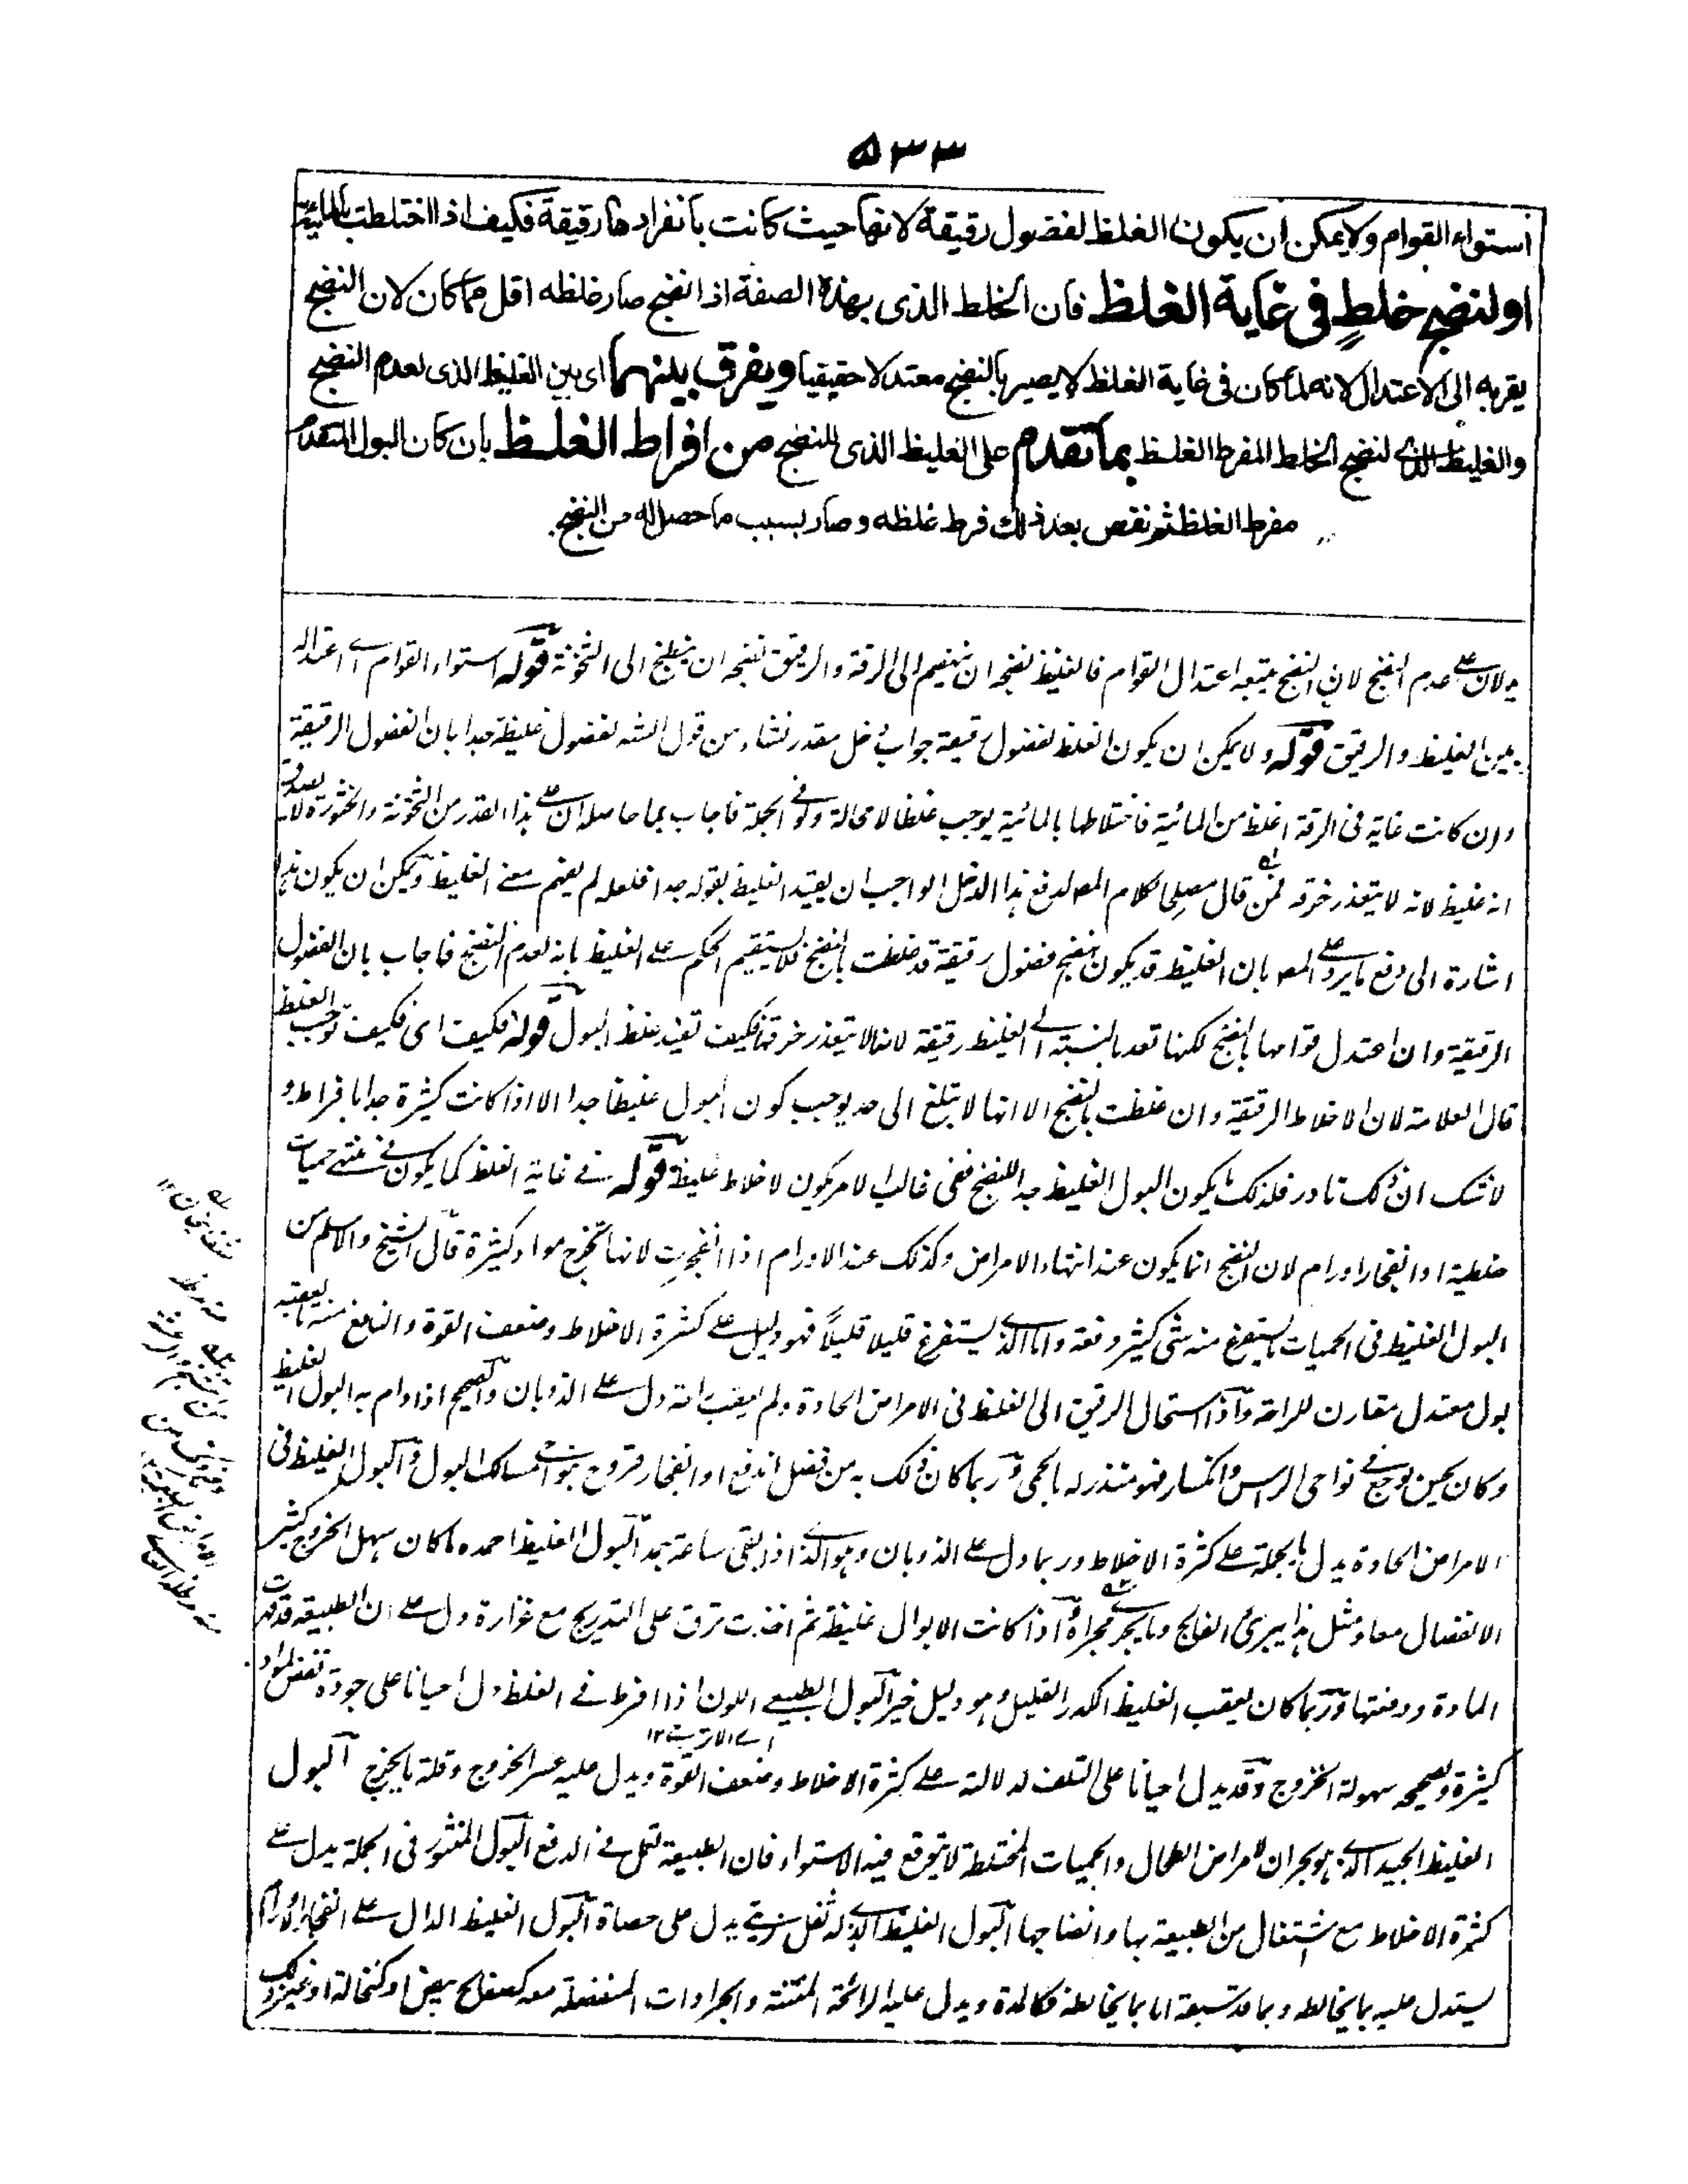 ۵۳۳
استواء القوام ولا يمكن ان يكون الغلظ لفضول رقيقة لانها حيث كانت بانفرادها رقيقة فكيف اذا اختلطت بالمائية
او لنضج خلطٍ فى غاية الغلظ فان الخلط الذى بهذه الصفة اذا نضج صار غلظه اقل مما كان لان النضج
يقربه الى الاعتدال لانه لما كان فى غاية الغلظ لا يصير بالنضج معتدلا حقيقيا ويفرق بينهما اى بين الغليظ الذى لعدم النضج
والغليظ الذى لنضج الخلط المفرط الغلظ بما تقدم على الغليظ الذى للنضج من افراط الغلظ بان كان البول المتقدم
مفرط الغلظ ثم نقص بعد ذلك فرط غلظه وصار بسبب ما حصل له من النضج
يدلان على عدم النضج لان النضج يتبعه اعتدال القوام فالغليظ نضجه ان ينهضم الى الرقة والرقيق نضجه ان ينطبخ الى الثخونة قوله استواء القوام اے اعتداله
بين الغليظ والرقيق قوله ولا يمكن ان يكون الغلظ لفضول رقيقة جواب دخل مقدر نشاء من قول الشه لفضول غليظة جدا بان الفضول الرقيقة
وان كانت غاية فى الرقة اغلظ من المائية فاختلاطها بالمائية يوجب غلظا لا محالة ولو فى الجملة فاجاب بما حاصله ان على هذا القدر من الثخونة والخثورة لا يصدق
انه غليظ لانه لا يتعذر خرقه فمن قال مصلحا لكلام المصه لدفع هذا الدخل الواجب ان يقيد الغليظ بقوله جدا فلعله لم يفهم معنى الغليظ ويمكن ان يكون هذا
اشارة الى دفع ما يرد على المصه بان الغليظ قد يكون لنضج فضول رقيقة قد غلظت بالنضج فلا يستقيم الحكم على الغليظ بانه لعدم النضج فاجاب بان الفضول
الرقيقة وان اعتدل قوامها بالنضج لكنها تعد بالنسبة الى الغليظ رقيقة لانها لا يتعذر خرقها فكيف تفيد غلظ البول قوله فكيف اى فكيف توجب الغلظ
قال العلامة لان الاخلاط الرقيقة وان غلظت بالنضج الا انها لا تبلغ الى حد يوجب كون البول غليظا جدا الا اذا كانت كثيرة جدا بافراط و
لا شك ان ذلك نادر فلذلك ما يكون البول الغليظ جدا للنضج ففى غالب الامر يكون لاخلاط غليظة قوله فى غاية الغلظ كما يكون فى منتهى حميات
خلطية او انفجار اورام لان النضج انما يكون عند انتهاء الامراض وكذلك عند الاورام اذا انفجرت لانها تخرج مواد كثيرة قال الشيخ والاسلم من
البول الغليظ فى الحميات ما يستفرغ منه شى كثير دفعة واما الذى يستفرغ قليلا قليلاً فهو دليل على كثرة الاخلاط وضعف القوة والنافع منه ما يعقبه
بول معتدل مقارن للراحة واذا استحال الرقيق الى الغلظ فى الامراض الحادة ولم يعقب راحة دل على الذوبان والصحيح اذا دام به البول الغليظ
وكان يحس بوجع فى نواحى الراس وانكسار فهو منذر له بالحمى وربما كان ذلك به من فضل اندفع او انفجار قروح بنواحى مسالك البول والبول الغليظ فى
الامراض الحادة يدل بالجملة على كثرة الاخلاط وربما دل على الذوبان وهو الذى اذا بقى ساعة جمد البول الغليظ احمده ما كان سهل الخروج كثير
الانفصال معا ومثل هذا يبرئ الفالج وما يجرى مجراه اذا كانت الابوال غليظة ثم اخذت ترق على التدريج مع غزارة دل على ان الطبيعة قد قهرت
المادة ودفعتها وربما كان يعقب الغليظ الكدر القليل وهو دليل خير البول الطبيعى اللون اذا افرط فى الغلظ دل احيانا على جودة نفض لمواد
اے الاترب ۱۲
كثيرة وتصحيحه سهولة الخروج وقد يدل احيانا على التلف لدلالته على كثرة الاخلاط وضعف القوة ويدل عليه عسر الخروج وقلة ما يخرج البول
الغليظ الجيد الذى هو بحران لامراض الطحال والحميات المختلطة لا يتوقع فيه الاستواء فان الطبيعة تعمل فى الدفع البول المثور فى الجملة يدل على
كثرة الاخلاط مع اشتغال من الطبيعة بها وانضاجها البول الغليظ الذى له ثفل زيتى يدل على حصاة البول الغليظ الدال على انفجار الاورام
يستدل عليه بما يخالطه وبما قد سبقه اما بما يخالطه فكالمدة ويدل عليه الرائحة المنتنة والجرادات المنفصلة معه كصفائح بيض او كنخالة او غير ذلك